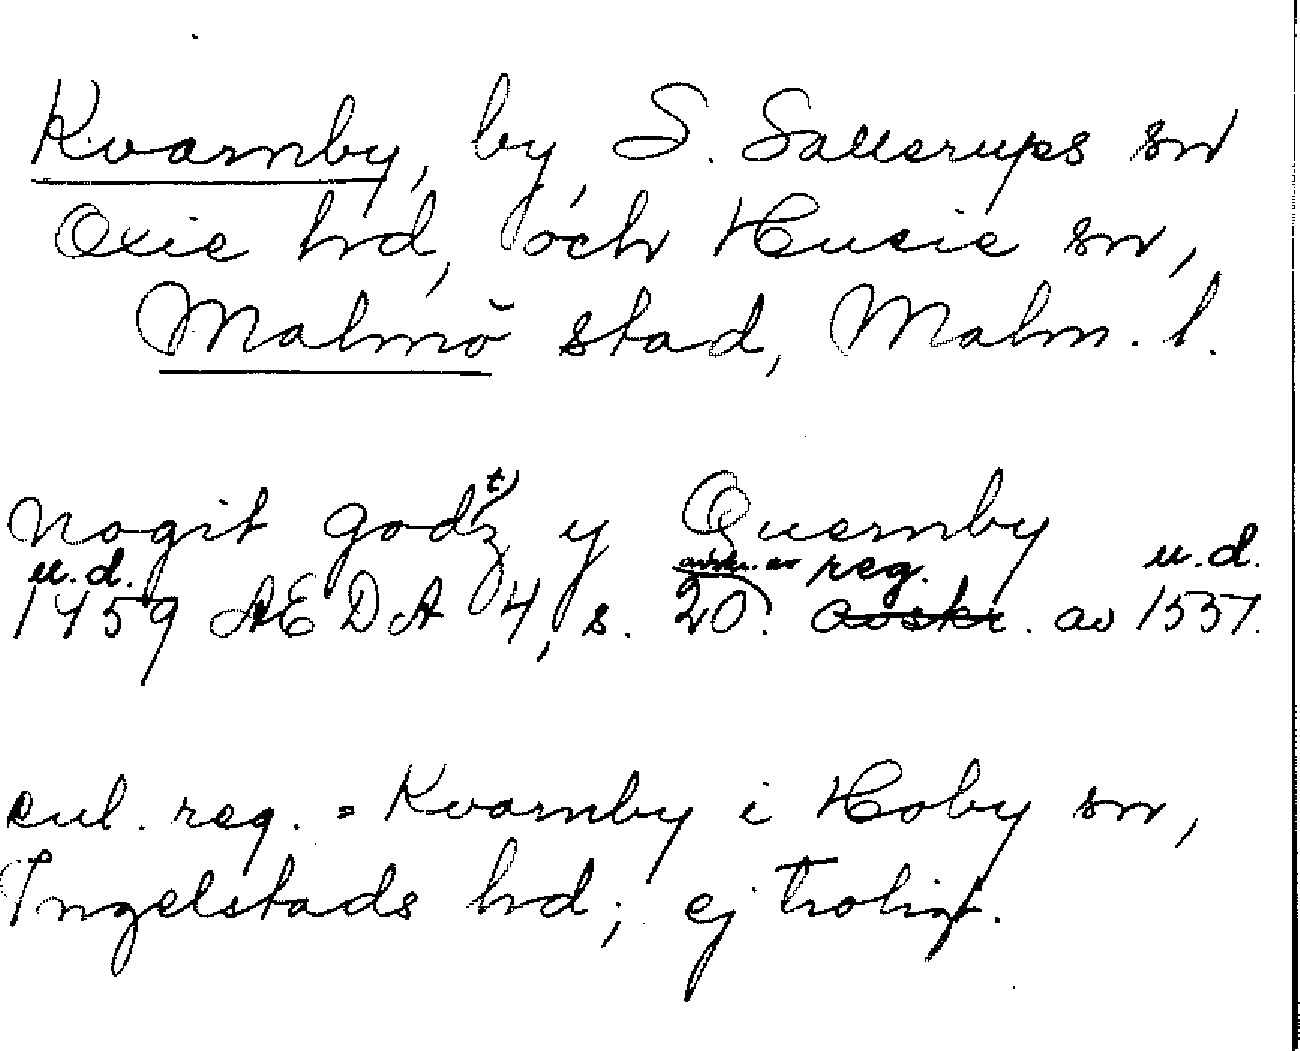 Kvarnby, by, S. Sallerups sn
Oxie hd, och Husie sn,
Malmö stad, Malm. l.
nogit godz t) y Quernby
u.d. avskr. av reg. u.d.
1459 AEDA 4, s. 20. avskr. av 1551.
enl. reg. = Kvarnby i Hoby sn,
Ingelstads hd; ej trolig.